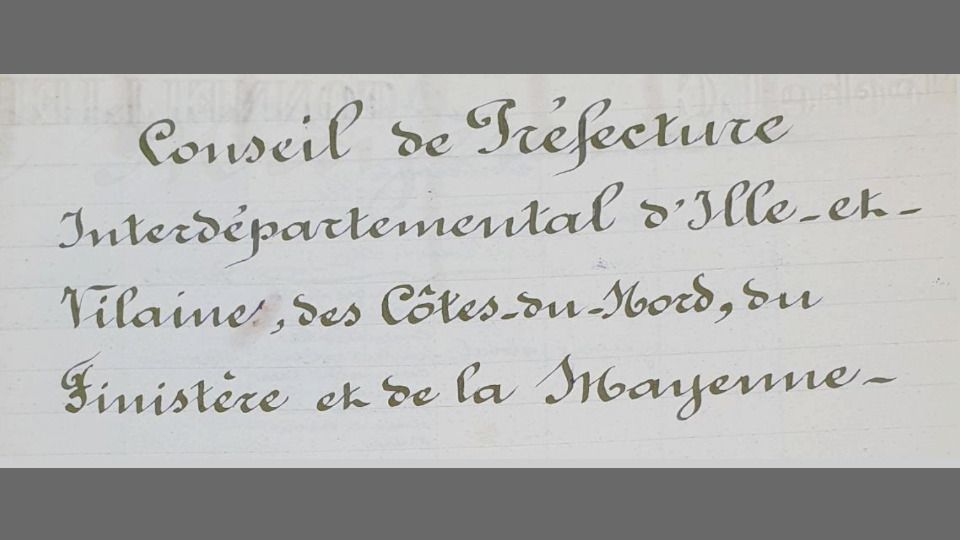 Conseil de Préfecture
Interdépartemental d'Ille-et-
Vilaine, des Côtes-du-Nord, du
Finistère et de la Mayenne-